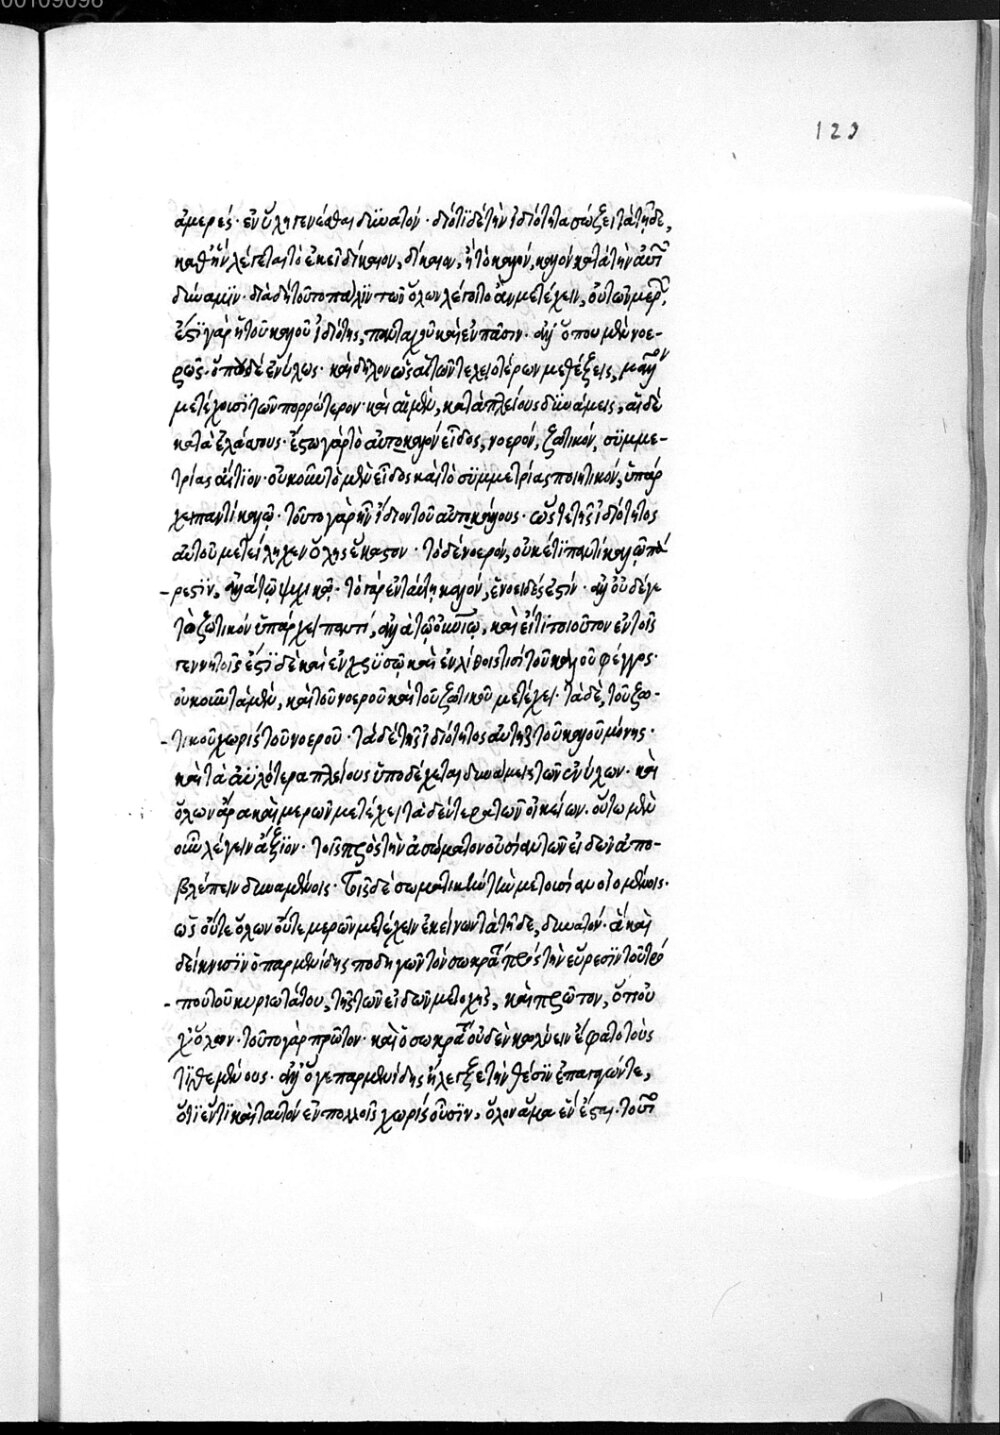 00109098
123
ἀμερές· ἐν ὕλῃ γενέσθαι δυνατόν· διότι δὲ τὴν ἰδιότητα σώζει τὰ τῇδε,
καθ' ἣν λέγεται τὸ ἐκεῖ δίκαιον, δίκαιον, ἢ τὸ καλόν, καλὸν κατὰ τὴν αὐτοῦ
δύναμιν· διὰ δὴ τοῦτο πάλιν τῶν ὅλων λέγοιτο ἂν μετέχειν, οὐ τῶν μερῶν,
ἔστι γὰρ ἡ τοῦ καλοῦ ἰδιότης, πανταχοῦ καὶ ἐν πᾶσιν· ἀλλ' ὅπου μὲν νοε-
ρῶς· ὅπου δὲ ἐνύλως· καὶ δῆλον ὡς αἱ τῶν τελειοτέρων μεθέξεις, μᾶλλον
μετέχουσι τῶν πορρώτερον· καὶ αἱ μὲν, κατὰ πλείους δυνάμεις, αἱ δὲ
κατὰ ἐλάττους· ἔστω γὰρ τὸ αὐτοκαλὸν εἶδος, νοερόν, ζωτικόν, συμμε-
τρίας αἴτιον· οὐκοῦν τὸ μὲν εἶδος καὶ τὸ συμμετρίας ποιητικόν, ὑπάρ
χει παντὶ καλῷ· τοῦτο γὰρ ἦν ἴδιον τοῦ αὐτοκάλλους· ὥστε τῆς ἰδιότητος
αὐτοῦ μετείληχεν ὅλης ἕκαστον· τὸ δὲ νοερόν, οὐκέτι παντὶ καλῷ πά
ρεστιν, ἀλλὰ τῷ ψυχικῷ· τὸ γὰρ ἐν ταύτῃ καλόν, ἑνοειδές ἐστίν· ἀλλ' οὐδέ γε
τὸ ζωτικὸν ὑπάρχει παντί, ἀλλὰ τῷ οὐρανίῳ, καὶ εἴ τι τοιοῦτον ἐν τοῖς
γεννητοῖς ἐστὶ δὲ καὶ ἐν χρυσῷ καὶ ἐν λίθοις τισὶ τοῦ καλοῦ φέγγος·
οὐκοῦν τὰ μὲν, καὶ τοῦ νοεροῦ καὶ τοῦ ζωτικοῦ μετέχει· τὰ δὲ, τοῦ ζω-
τικοῦ χωρὶς τοῦ νοεροῦ· τὰ δὲ τῆς ἰδιότητος αὐτῆς τοῦ καλοῦ μόνης·
καὶ τὰ ἀϋλότερα πλείους ὑποδέχεται δυνάμεις τῶν ἐνύλων· καὶ
ὅλων ἄρα καὶ μερῶν μετέχει τὰ δεύτερα τῶν οἰκείων· οὕτω μὲν
οὖν λέγειν ἄξιον· τοῖς πρὸς τὴν ἀσώματον οὐσίαν τῶν εἰδῶν ἀπο-
βλέπειν δυναμένοις· τοῖς δὲ σωματικὴν τὴν μετουσίαν οἰομένοις·
ὡς οὔτε ὅλων οὔτε μερῶν μετέχειν ἐκείνων τὰ τῇδε, δυνατόν· ἃ καὶ
δείκνυσιν ὁ παρμενίδης ποδηγῶν τὸν σωκράτη πρὸς τὴν εὕρεσιν τοῦ τρό
που τοῦ κυριωτάτου, τῆς τῶν εἰδῶν μετοχῆς, καὶ πρῶτον, ὅτι οὐ
χ' ὅλων· τοῦτο γὰρ πρῶτον· καὶ ὁ σωκράτης οὐδὲν κωλύειν ἔφατο τοὺς
τιθεμένους· ἀλλ' ὅ γε παρμενίδης ἤλεγξε τὴν θέσιν ἐπαγαγών τε,
ὅτι ἕν τι καὶ ταυτὸν ἐν πολλοῖς χωρὶς οὖσιν· ὅλον ἅμα ἓν ἔσται· τοῦτο